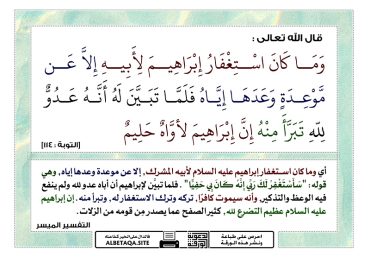 قال الله تعالى :
وَمَا كَانَ اسْتِغْفَارُ إِبْرَاهِيمَ لِأَبِيهِ إِلاَّ عَن
مَّوْعِدَةٍ وَعَدَهَا إِيَّاهُ فَلَمَّا تَبَيَّنَ لَهُ أَنَّهُ عَدُوٌّ
لِلّهِ تَبَرَّأَ مِنْهُ إِنَّ إِبْرَاهِيمَ لأوَّاهٌ حَلِيمٌ
[التوبة : ١١٤]
أي وما كان استغفار إبراهيم عليه السلام لأبيه المشرك، إلا عن موعدة وعدها إياه، وهي
قوله: "سَأَسْتَغْفِرُ لَكَ رَبِّي إِنَّهُ كَانَ بِي حَفِيًّا" . فلما تبيَّن لإبراهيم أن أباه عدو لله ولم ينفع
فيه الوعظ والتذكير، وأنه سيموت كافرًا، تركه وترك الاستغفار له، وتبرأ منه. إن إبراهيم
عليه السلام عظيم التضرع لله، كثير الصفح عما يصدر مِن قومه من الزلات.
التفسير الميسر
احرص على طباعة
ونشر هذه الورقة
ALBETAQA.SITE